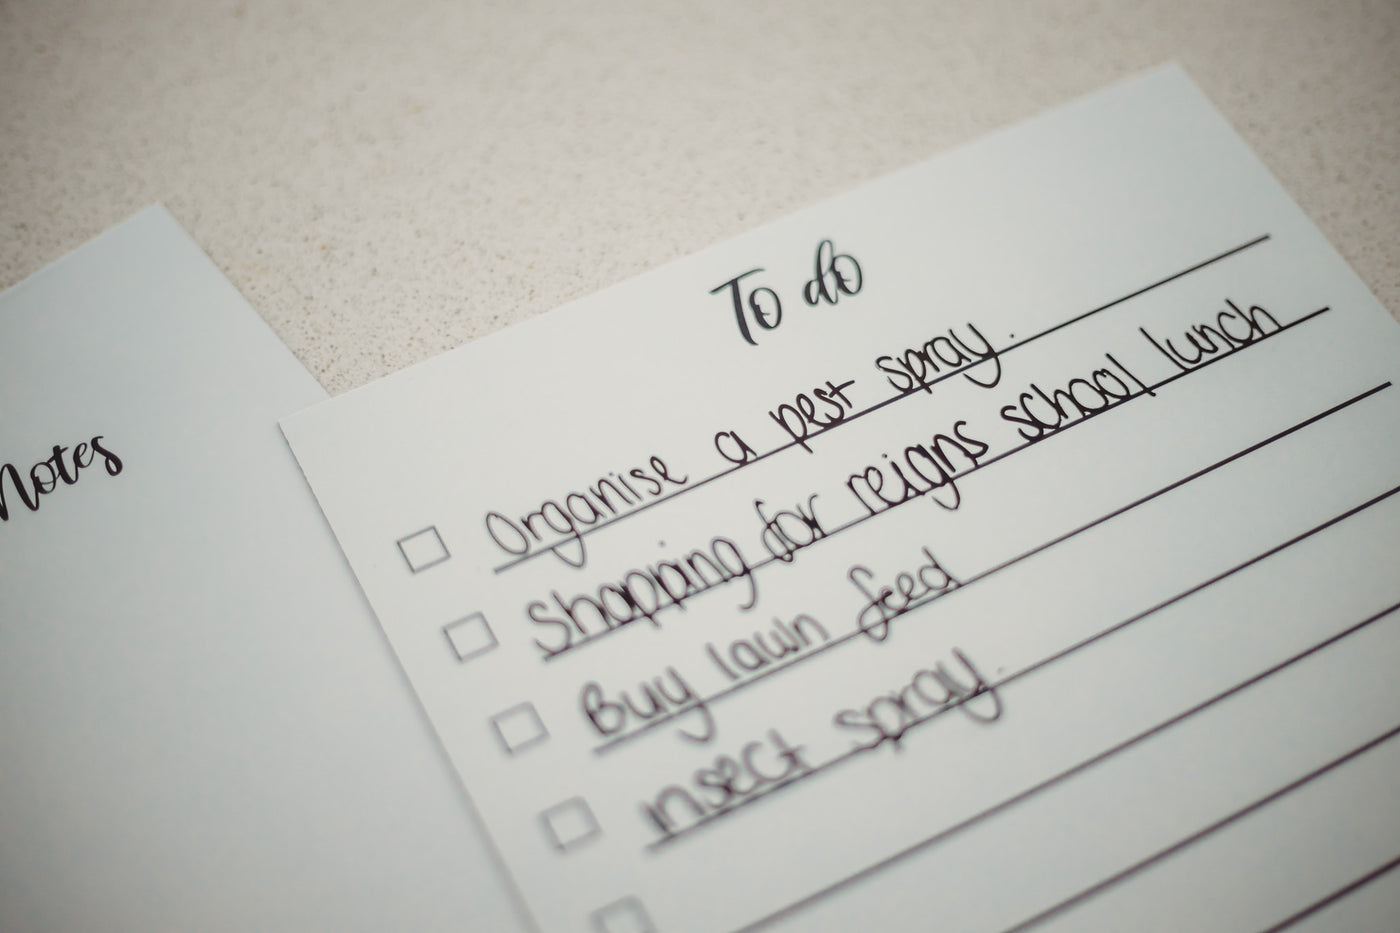 Notes
To do
Organise a pest spray.
Shopping for reigns school lunch
Buy lawn feed
insect spray.